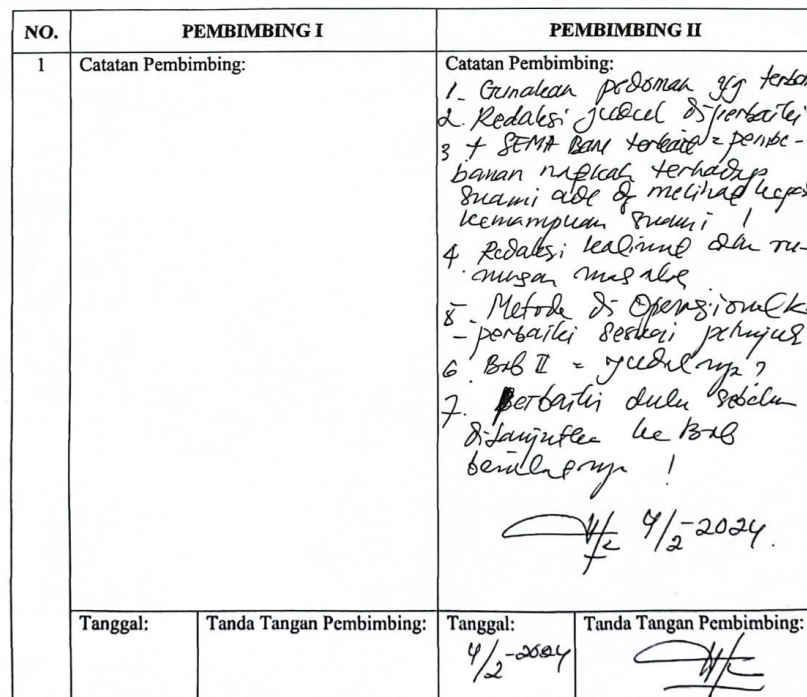 NO.
PEMBIMBING I
PEMBIMBING II
1
Catatan Pembimbing:
Catatan Pembimbing:
1. Gunakan pedoman yg terbar
2. Redaksi judul diperbaiki
3 + SEMA Baru terkait = pembe-
banan nafkah terhadap
suami melihat
kemampuan suami !
4 Redaksi kalimat dan ru-
musan masalah
5. Metode di Operasionalk
- perbaiki sesuai petunjuk
6. Bab II = judulnya ?
7. Perbaiki dulu sebelum
dilanjutkan ke Bab
berikutnya !
4/2-2024.
Tanggal:
Tanda Tangan Pembimbing:
Tanggal:
4/2-2024
Tanda Tangan Pembimbing: